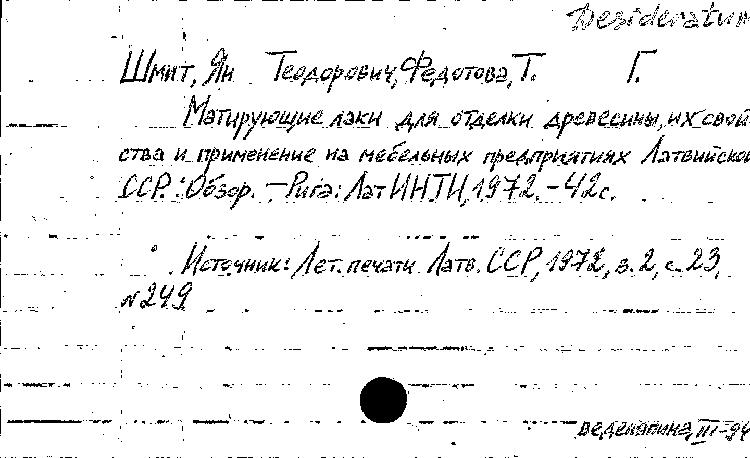 Desideratum
Шмит, Ян Теодорович, Федотова, Т. Г.
Матирующие лаки для отделки древесины, их свой
ства и применение на мебельных предприятиях Латвийской
ССР. : Обзор. - Рига: ЛатИНТИ, 1972. - 42 с.
Источник: Лет. печати Латв. ССР, 1972, в. 2, с. 23,
№ 249
III-94